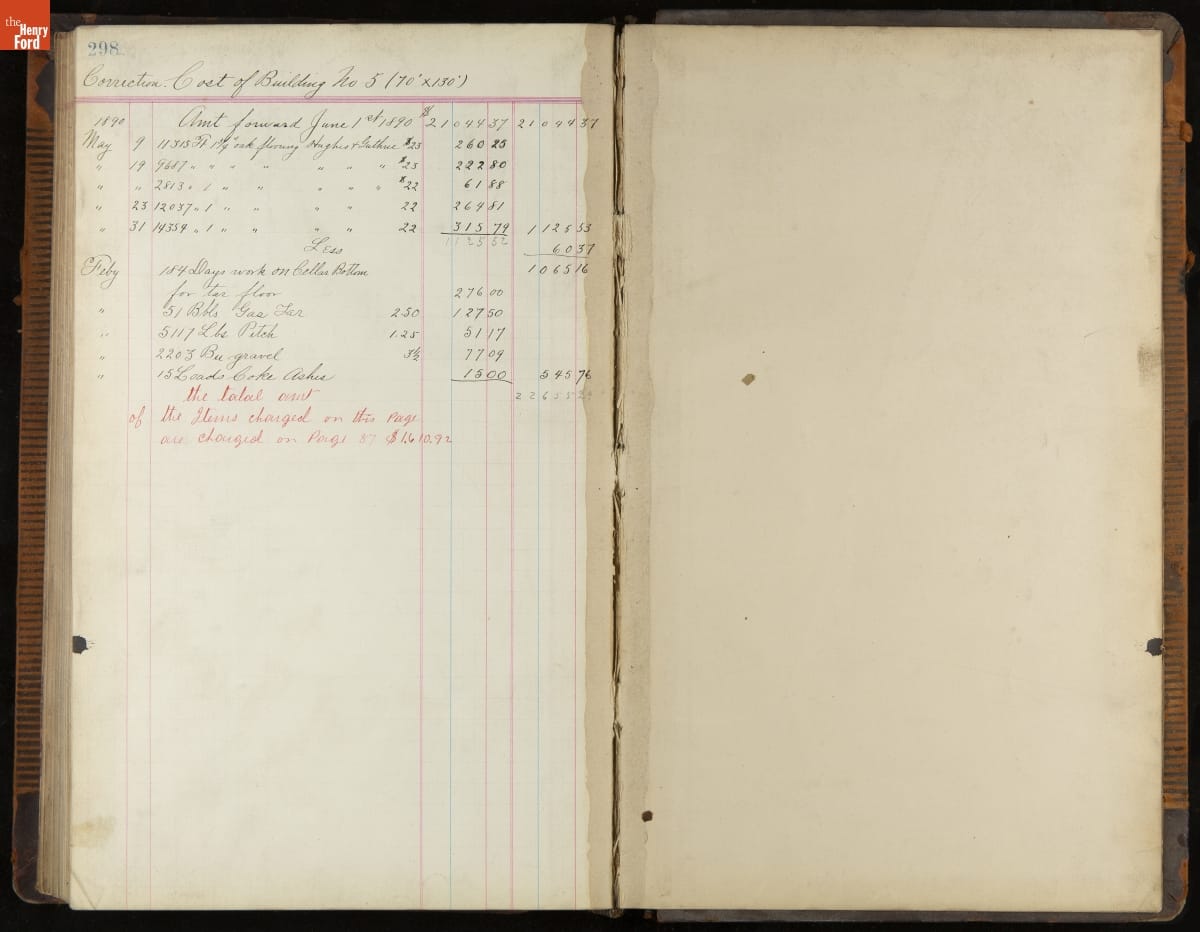 the Henry Ford
298
Correction. Cost of Building No 5 (70' x 130')
1890 Amt forward June 1st 1890 $ 21044 37 21044 37
May 9 11315 Ft 1 1/4" oak flooring Hughes & Guthrie $23 260 25
" 19 9687 " " " " " " " $23 222 80
" " 2813 " 1 " " " " " $22 61 88
" 23 12037 " 1 " " " " 22 264 81
" 31 14354 " 1 " " " " 22 315 79 1125 53
1125 52
Less 60 37
Feby 184 Days work on Cellar Bottom 1065 16
for tar floor 276 00
" 51 Bbls Gas Tar 2.50 127 50
" 5117 Lbs Pitch 1.25 51 17
" 2203 Bu gravel 3½ 77 09
" 15 Loads Coke Ashes 15 00 545 76
the total amt 22655 29
of the Items charged on this Page
are charged on Page 87 $1,610.92